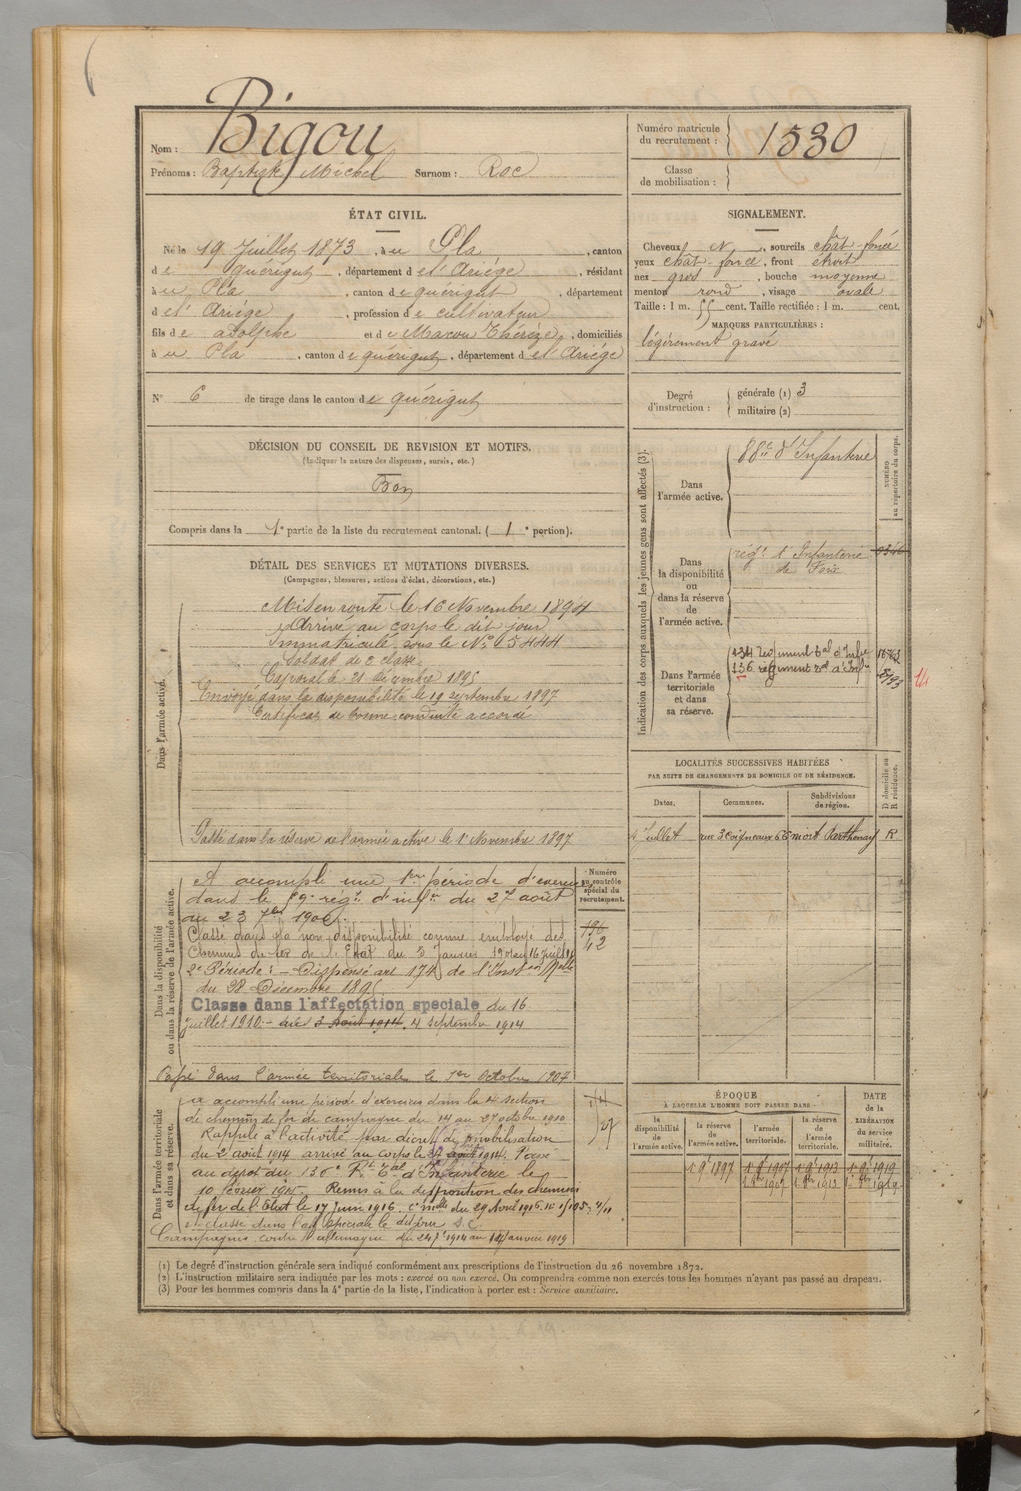 Nom : Bigou
Prénoms : Baptiste Michel Surnom : Roc
Numéro matricule du recrutement : 1530
Classe de mobilisation :
ÉTAT CIVIL.
Né le 19 Juillet 1873, à u Pla, canton
de Quérigut, département de l'Ariège, résidant
à u Pla, canton de Quérigut, département
d el' Ariège, profession de cultivateur
fils de adolphe et de Marcou Thérèze, domiciliés
à u Pla, canton de quérigut, département d el' Ariége
N° 6 de tirage dans le canton de quérigut
SIGNALEMENT.
Cheveux N, sourcils chât-foncé
yeux chât-foncé, front étroit
nez gros, bouche moyenne
menton rond, visage ovale
Taille : 1 m. 55 cent. Taille rectifiée : 1 m. cent.
MARQUES PARTICULIÈRES :
légèrement gravé
Degré d'instruction : générale (1) 3
militaire (2)
DÉCISION DU CONSEIL DE REVISION ET MOTIFS.
(Indiquer la nature des dispenses, sursis, etc.)
Bon
Compris dans la 1e partie de la liste du recrutement cantonal. ( 1e portion).
DÉTAIL DES SERVICES ET MUTATIONS DIVERSES.
(Campagnes, blessures, actions d'éclat, décorations, etc.)
Dans l'armée active.
Mis en route le 16 Novembre 1894
Arrivé au corps le dit jour
Immatriculé sous le N° 5444
Soldat de 2e classe
Caporal le 21 décembre 1895
Envoyé dans la disponibilité le 19 septembre 1897
Certificat de bonne conduite accordé
Passé dans la réserve de l'armée active le 1er Novembre 1897
Dans la disponibilité ou dans la réserve de l'armée active.
Numéro au contrôle spécial du recrutement.
A accompli une 1ère période d'exercices
dans le 59e régt d'infie du 27 août
au 23 7bre 1900.
Classé dans la non disponibilité comme employé des
Chemins de fer de l'Etat du 3 Janvier
2e Période : - Dispensé art 174 de l'Inston Melle
du 28 Décembre 1895
Classé dans l'affectation spéciale du 16
juillet 1910 - au 3 Août 1914. 4 septembre 1914
Passé dans l'armée territoriale le 1er Octobre 1907
Dans l'armée territoriale et dans sa réserve.
a accompli une période d'exercices dans la 4e section
de chemins de fer de campagne du 14 au 27 octobre 1910
Rappelé à l'activité par décret de mobilisation
du 2 août 1914 arrivé au corps le août 1914. Passé
au dépôt du 136e Rt Tal d'Infanterie le
10 février 1915. Remis à la disposition des chemins
de fer de l'Etat le 17 Juin 1916. Cre melle du 29 Avril 1916
et classé dans l'aff spéciale le dit jour S.C.
Campagnes contre l'allemagne du 1914 au 14 Janvier 1919
Indication des corps auxquels les jeunes gens sont affectés (3).
NUMÉRO au répertoire du corps.
Dans l'armée active.
88e d'Infanterie
Dans la disponibilité ou dans la réserve de l'armée active.
régt d'Infanterie
de Foix
Dans l'armée territoriale et dans sa réserve.
134 régiment tal d'Infie
136 régiment tal d'Infie
LOCALITÉS SUCCESSIVES HABITÉES
PAR SUITE DE CHANGEMENTS DE DOMICILE OU DE RÉSIDENCE.
Dates. Communes. Subdivisions de région. D domicile ou R résidence.
Juillet rue 3 Coigneaux 66 Niort Parthenay R
ÉPOQUE
À LAQUELLE L'HOMME DOIT PASSER DANS
la disponibilité de l'armée active. la réserve de l'armée active. l'armée territoriale. la réserve de l'armée territoriale. DATE de la LIBÉRATION du service militaire.
1 9b 1897 1 9b 1907 1 9b 1913 1 9b 1919
1 8bre 1907 1 8bre 1913 1 8bre 1919
(1) Le degré d'instruction générale sera indiqué conformément aux prescriptions de l'instruction du 26 novembre 1872.
(2) L'instruction militaire sera indiquée par les mots : exercé ou non exercé. On comprendra comme non exercés tous les hommes n'ayant pas passé au drapeau.
(3) Pour les hommes compris dans la 4e partie de la liste, l'indication à porter est : Service auxiliaire.